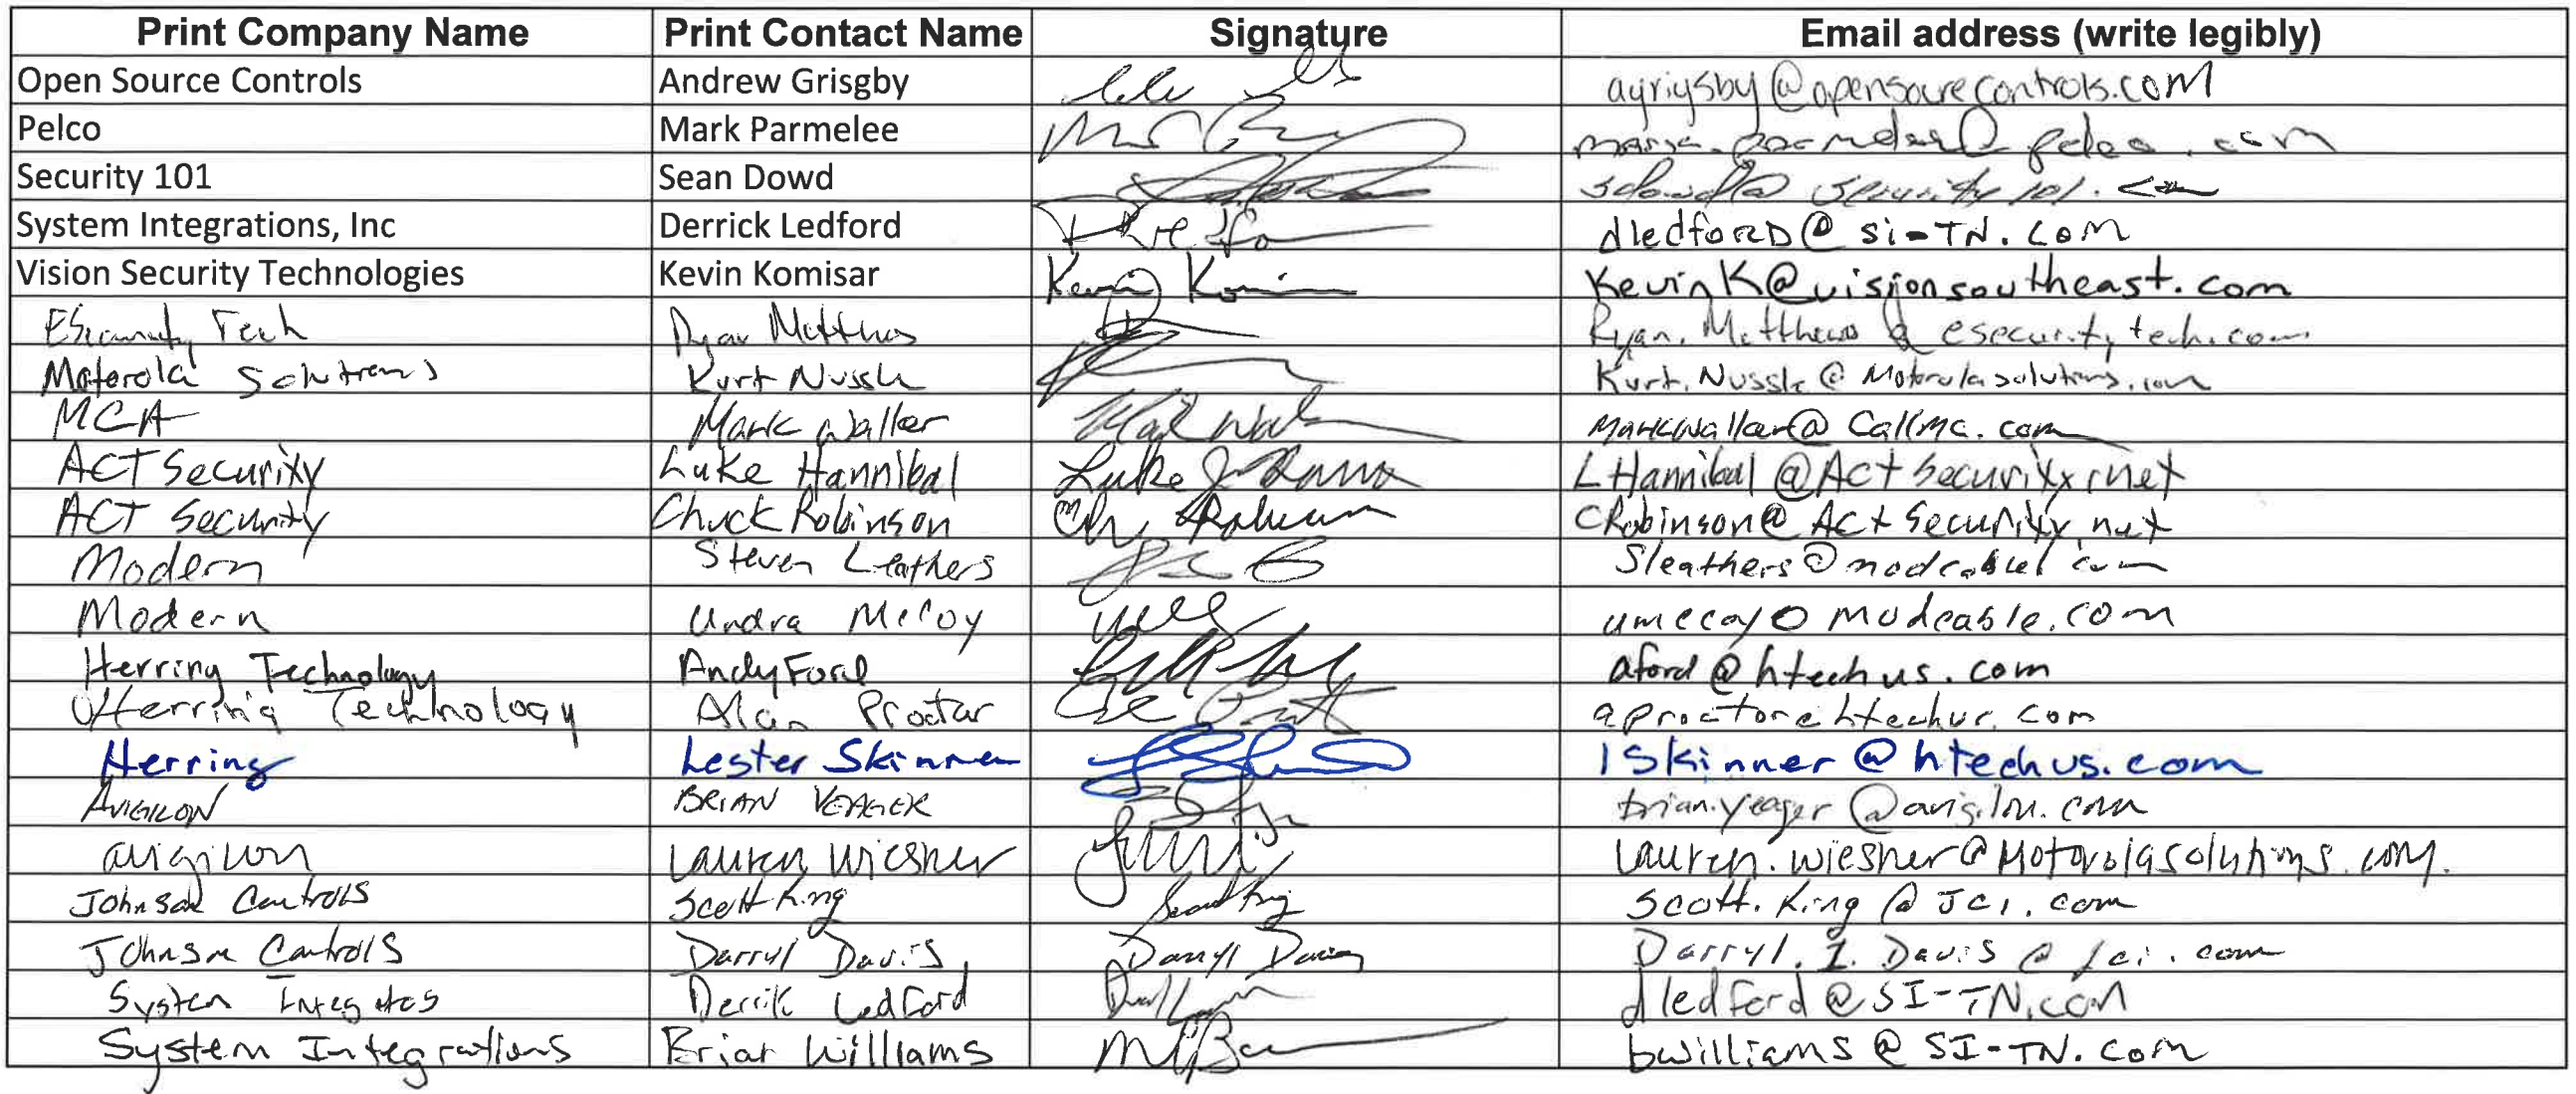 Print Company Name Print Contact Name Signature Email address (write legibly)
Open Source Controls Andrew Grisgby agrigsby@opensourecontrols.com
Pelco Mark Parmelee mark.parmelee@pelco.com
Security 101 Sean Dowd sdowd@security101.com
System Integrations, Inc Derrick Ledford dledfoRD@si-TN.com
Vision Security Technologies Kevin Komisar Kevin Komisar KevinK@visionsoutheast.com
ESecurity Tech Ryan Matthews Ryan.Matthews@esecuritytech.com
Motorola Solutions Kurt Nussle Kurt.Nussle@Motorolasolutions.com
MCA Mark Waller Mark Waller markwaller@callmc.com
ACT Security Luke Hannibal Luke LHannibal@ActSecurity.net
ACT Security Chuck Robinson Robinson CRobinson@ActSecurity.net
Modern Steven Leathers Sleathers@modcable.com
Modern Undra McCoy umccoy@modcable.com
Herring Technology Andy Ford aford@htechus.com
Herring Technology Alan Proctor aproctor@htechus.com
Herring Lester Skinner lskinner@htechus.com
AVIGILON BRIAN YEAGER brian.yeager@avigilon.com
avigilon Lauren Wiesner Lauren.wiesner@Motorolasolutions.com.
Johnson Controls Scott King Scott King Scott.King@JCI.com
Johnson Controls Darryl Davis Darryl Davis Darryl.I.Davis@jci.com
System Integrations Derrik Ledford dledford@SI-TN.com
System Integrations Brian Williams bwilliams@SI-TN.com